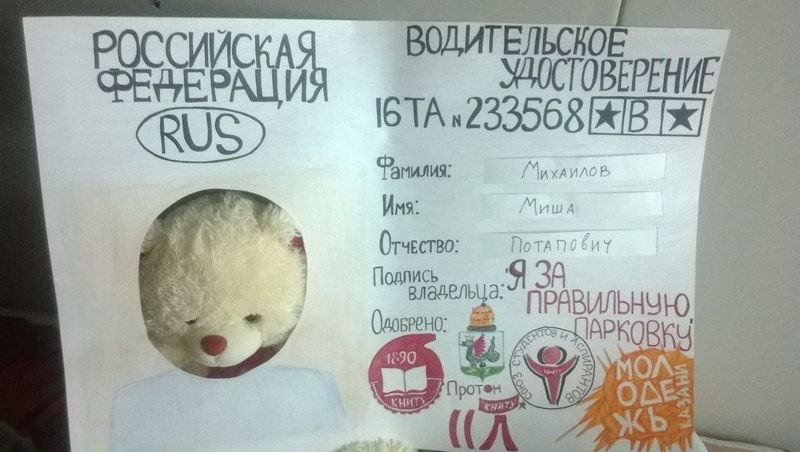 РОССИЙСКАЯ
ФЕДЕРАЦИЯ
RUS
ВОДИТЕЛЬСКОЕ
УДОСТОВЕРЕНИЕ
16ТА N 233568 ★ В ★
Фамилия: Михаилов
Имя: Миша
Отчество: Потапович
Подпись
владельца: "Я ЗА
ПРАВИЛЬНУЮ
ПАРКОВКУ"
Одобрено:
1890
КНИТУ
Протон
КНИТУ
СОЮЗ СТУДЕНТОВ И АСПИРАНТОВ
МОЛ
ОДЕ
ЖЬ
КАЗАНИ